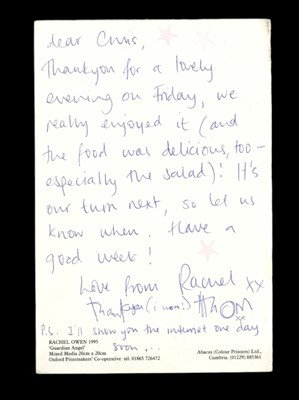 dear Chris,
Thankyou for a lovely
evening on Friday, we
really enjoyed it (and
the food was delicious, too -
especially the salad)! It's
our turn next, so let us
know when. Have a
good week!
Love from Rachel xx
Thankyou (i won!) THOM xx
P.S. I'll show you the internet one day
soon...
RACHEL OWEN 1995
'Guardian Angel'
Mixed Media 20cm x 20cm
Oxford Printmakers' Co-operative tel. 01865 726472
Abacus (Colour Printers) Ltd.,
Cumbria. (01229) 885361